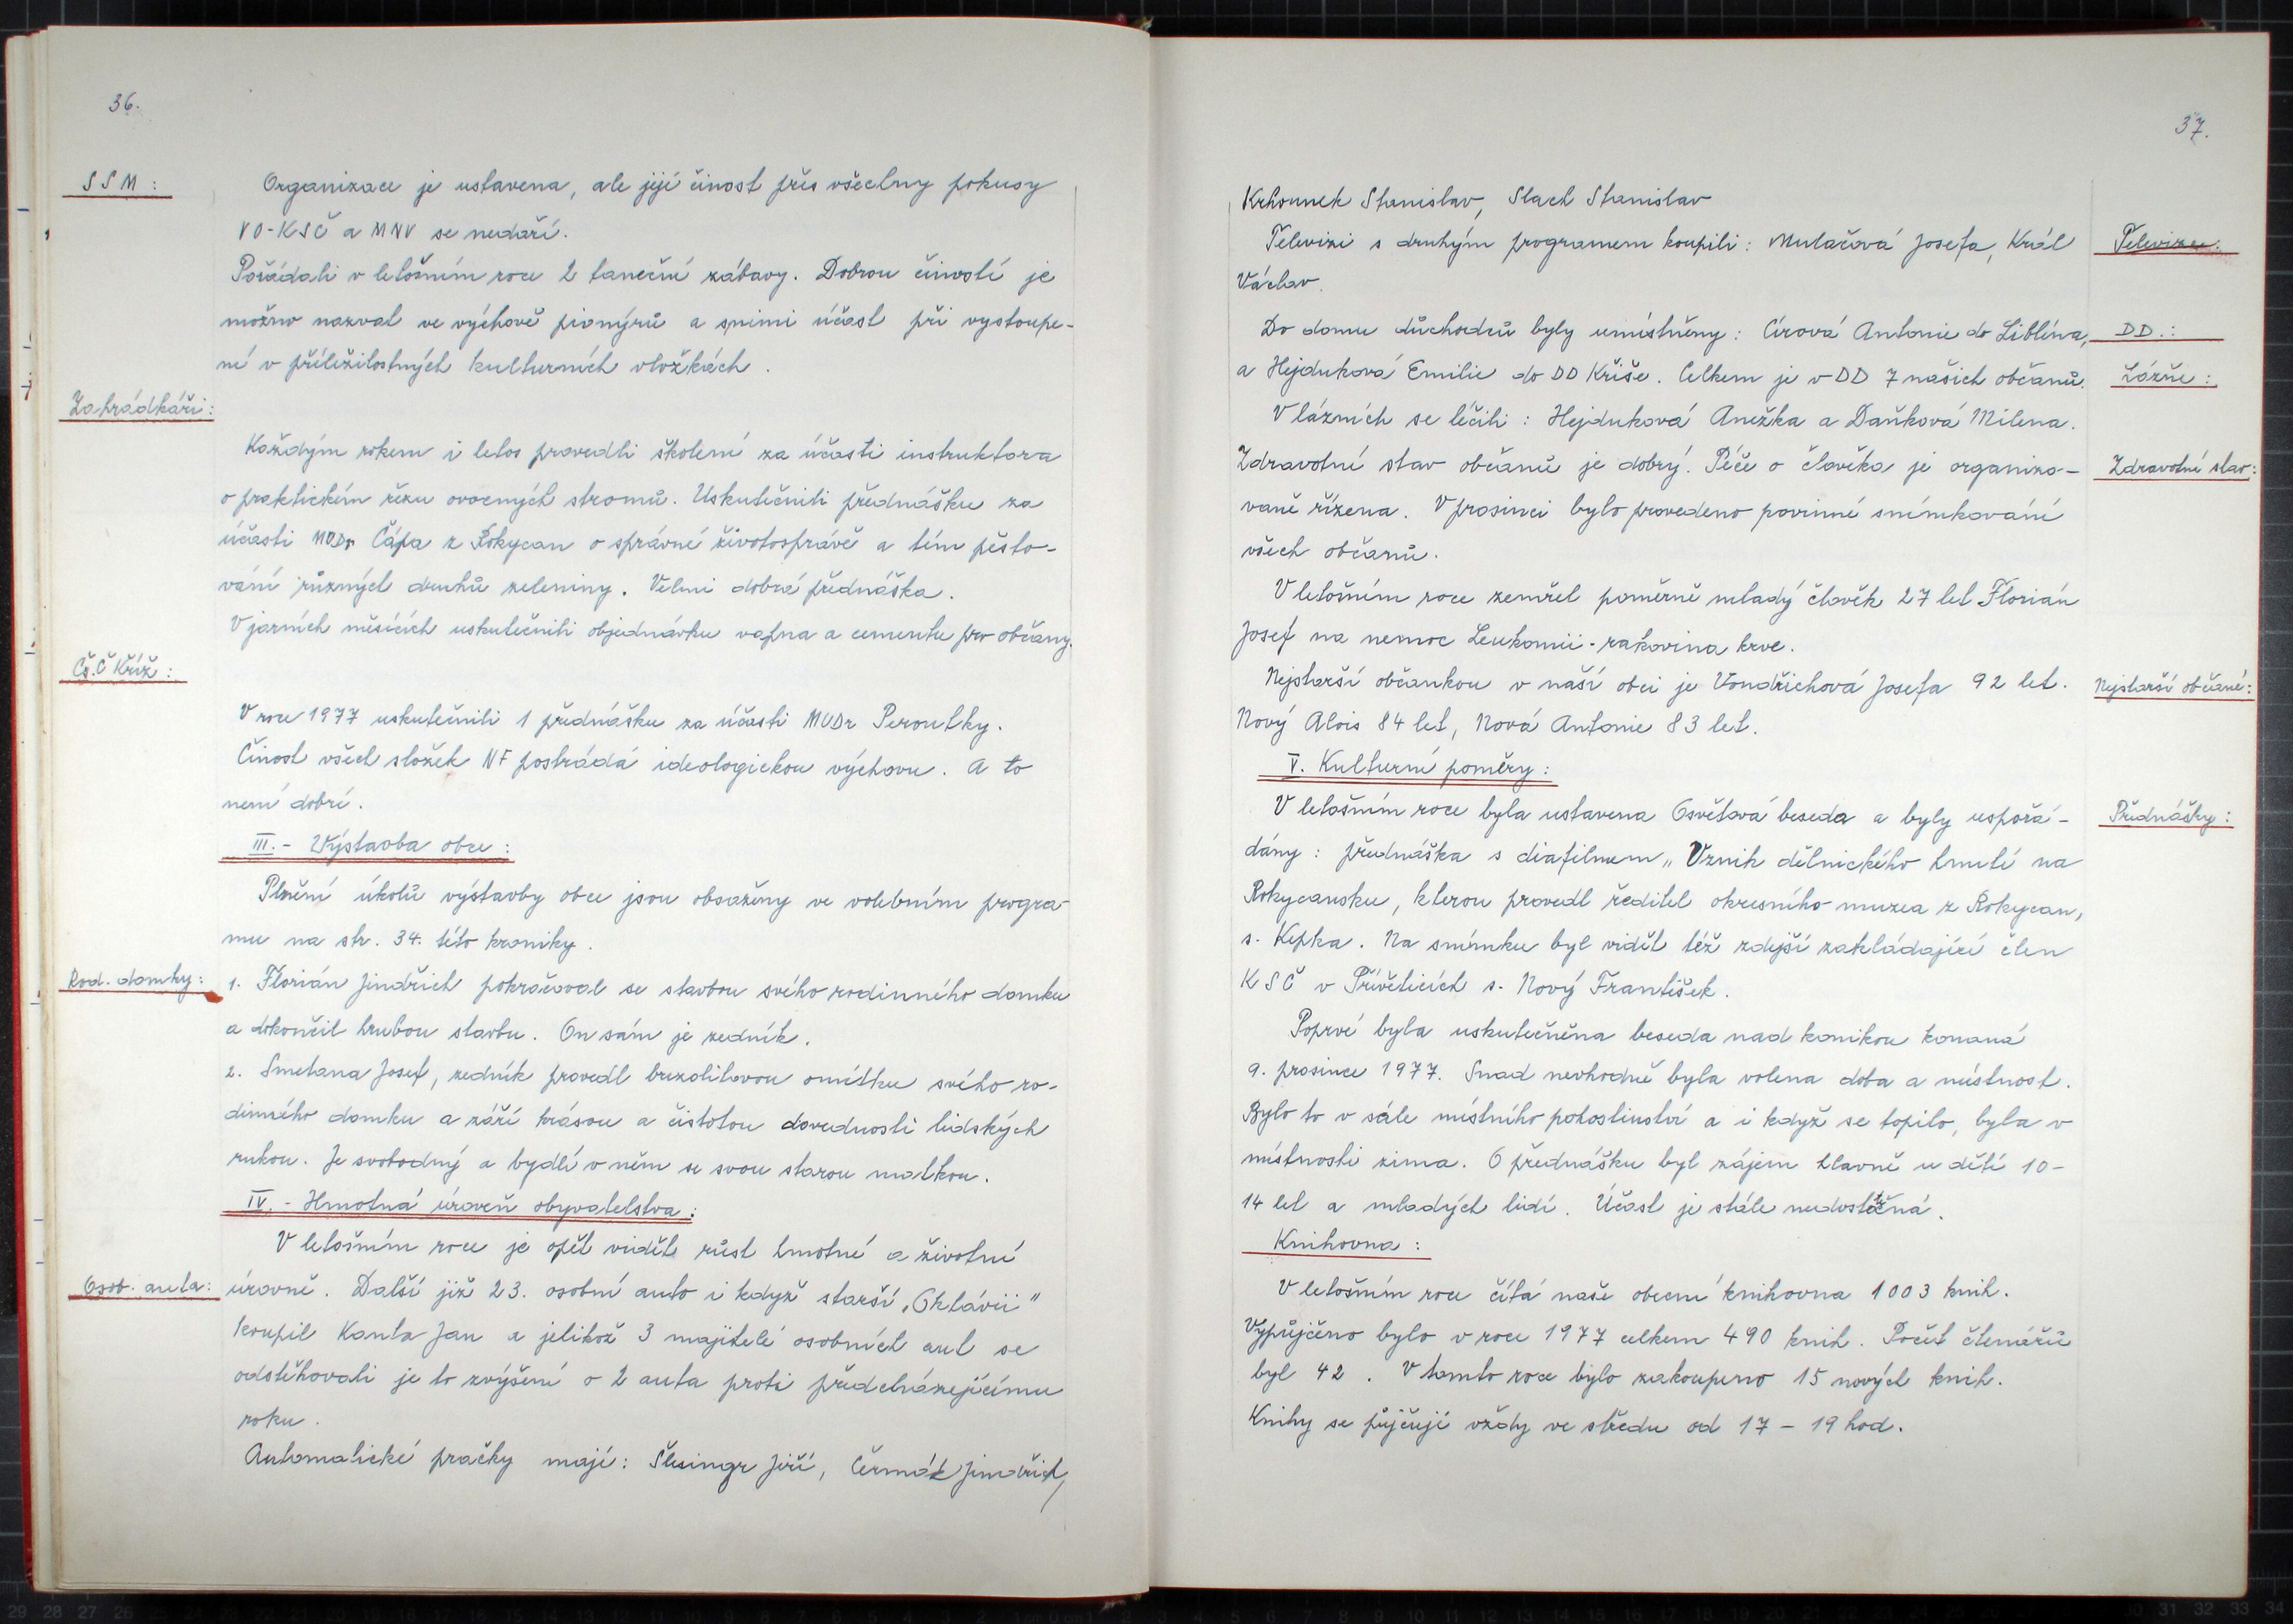 36.
SSM:
Organizace je ustavena, ale její činost přes všechny pokusy
VO-KSČ a MNV se nedaří.
Pořádali v letošním roce 2 taneční zábavy. Dobrou čiností je
možno nazvat ve výchově pionýrů a snimi účast při vystoupe-
ní v příležitostných kulturních vložkách.
Zahrádkáři:
Každým rokem i letos provedli školení za účasti instruktora
o praktickém řezu ovocných stromů. Uskutečnili přednášku za
účasti MUDr Čápa z Rokycan o správné životosprávě a tím pěsto-
vání různých druhů zeleniny. Velmi dobrá přednáška.
V jarních měsících uskutečnili objednávku vapna a cementu pro občany.
Čs.Č Kříž:
V roce 1977 uskutečnili 1 přednášku za účasti MUDr Peroutky.
Činost všech složek NF postrádá ideologickou výchovu. A to
není dobré.
III.- Výstavba obce:
Plnění úkolů výstavby obce jsou obsaženy ve volebním progra-
mu na str. 34. této kroniky.
Rod. domky:
1. Florián Jindřich pokračoval se stavbou svého rodinného domku
a dokončil hrubou stavbu. On sám je zedník.
2. Smetana Josef, zedník provedl brizolitovou omítku svého ro-
dinného domku a září krásou a čistotou dovednosti lidských
rukou. Je svobodný a bydlí v něm se svou starou matkou.
IV.- Hmotná úroveň obyvatelstva:
V letošním roce je opět vidět růst hmotné a životní
Osob. auta:
úrovně. Další již 23. osobní auto i když starší „Oktávii"
koupil Kanta Jan a jelikož 3 majitelé osobních aut se
odstěhovali je to zvýšení o 2 auta proti předcházejícímu
roku.
Automatické pračky mají: Šlesingr Jiří, Čermák Jindřich,
37.
Krhounek Stanislav, Slach Stanislav
Televizi s druhým programem koupili: Mulačová Josefa, Král
Televize:
Václav.
Do domu důchodců byly umístněny: Círová Antonie do Liblína,
DD.:
a Hejduková Emilie do DD Kříše. Celkem je v DD 7 našich občanů.
Lázně:
V lázních se léčili: Hejduková Anežka a Daňková Milena.
Zdravotní stav občanů je dobrý. Péče o člověka je organizo-
Zdravotní stav:
vaně řízena. V prosinci bylo provedeno povinné snímkování
všech občanů.
V letošním roce zemřel poměrně mladý člověk 27 let Florián
Josef na nemoc Leukomii-rakovina krve.
Nejstarší občankou v naší obci je Vondřichová Josefa 92 let.
Nejstarší občané:
Nový Alois 84 let, Nová Antonie 83 let.
V. Kulturní poměry:
V letošním roce byla ustavena Osvětová beseda a byly uspořá-
Přednášky:
dány: přednáška s diafilmem „Vznik dělnického hnutí na
Rokycansku, kterou provedl ředitel okresního muzea z Rokycan,
s. Kepka. Na snímku byl vidět též zdejší zakládající člen
KSČ v Přívěticích s. Nový František.
Poprvé byla uskutečněna beseda nad konikou konaná
9. prosince 1977. Snad nevhodně byla volena doba a místnost.
Bylo to v sále místního pohostinství a i když se topilo, byla v
místnosti zima. O přednášku byl zájem hlavně u dětí 10-
14 let a mladých lidí. Účast je stále nedostatečná.
Knihovna:
V letošním roce čítá naše obecní knihovna 1003 knih.
Vypůjčeno bylo v roce 1977 celkem 490 knih. Počet čtenářů
byl 42. V tomto roce bylo zakoupeno 15 nových knih.
Knihy se půjčují vždy ve středu od 17 - 19 hod.